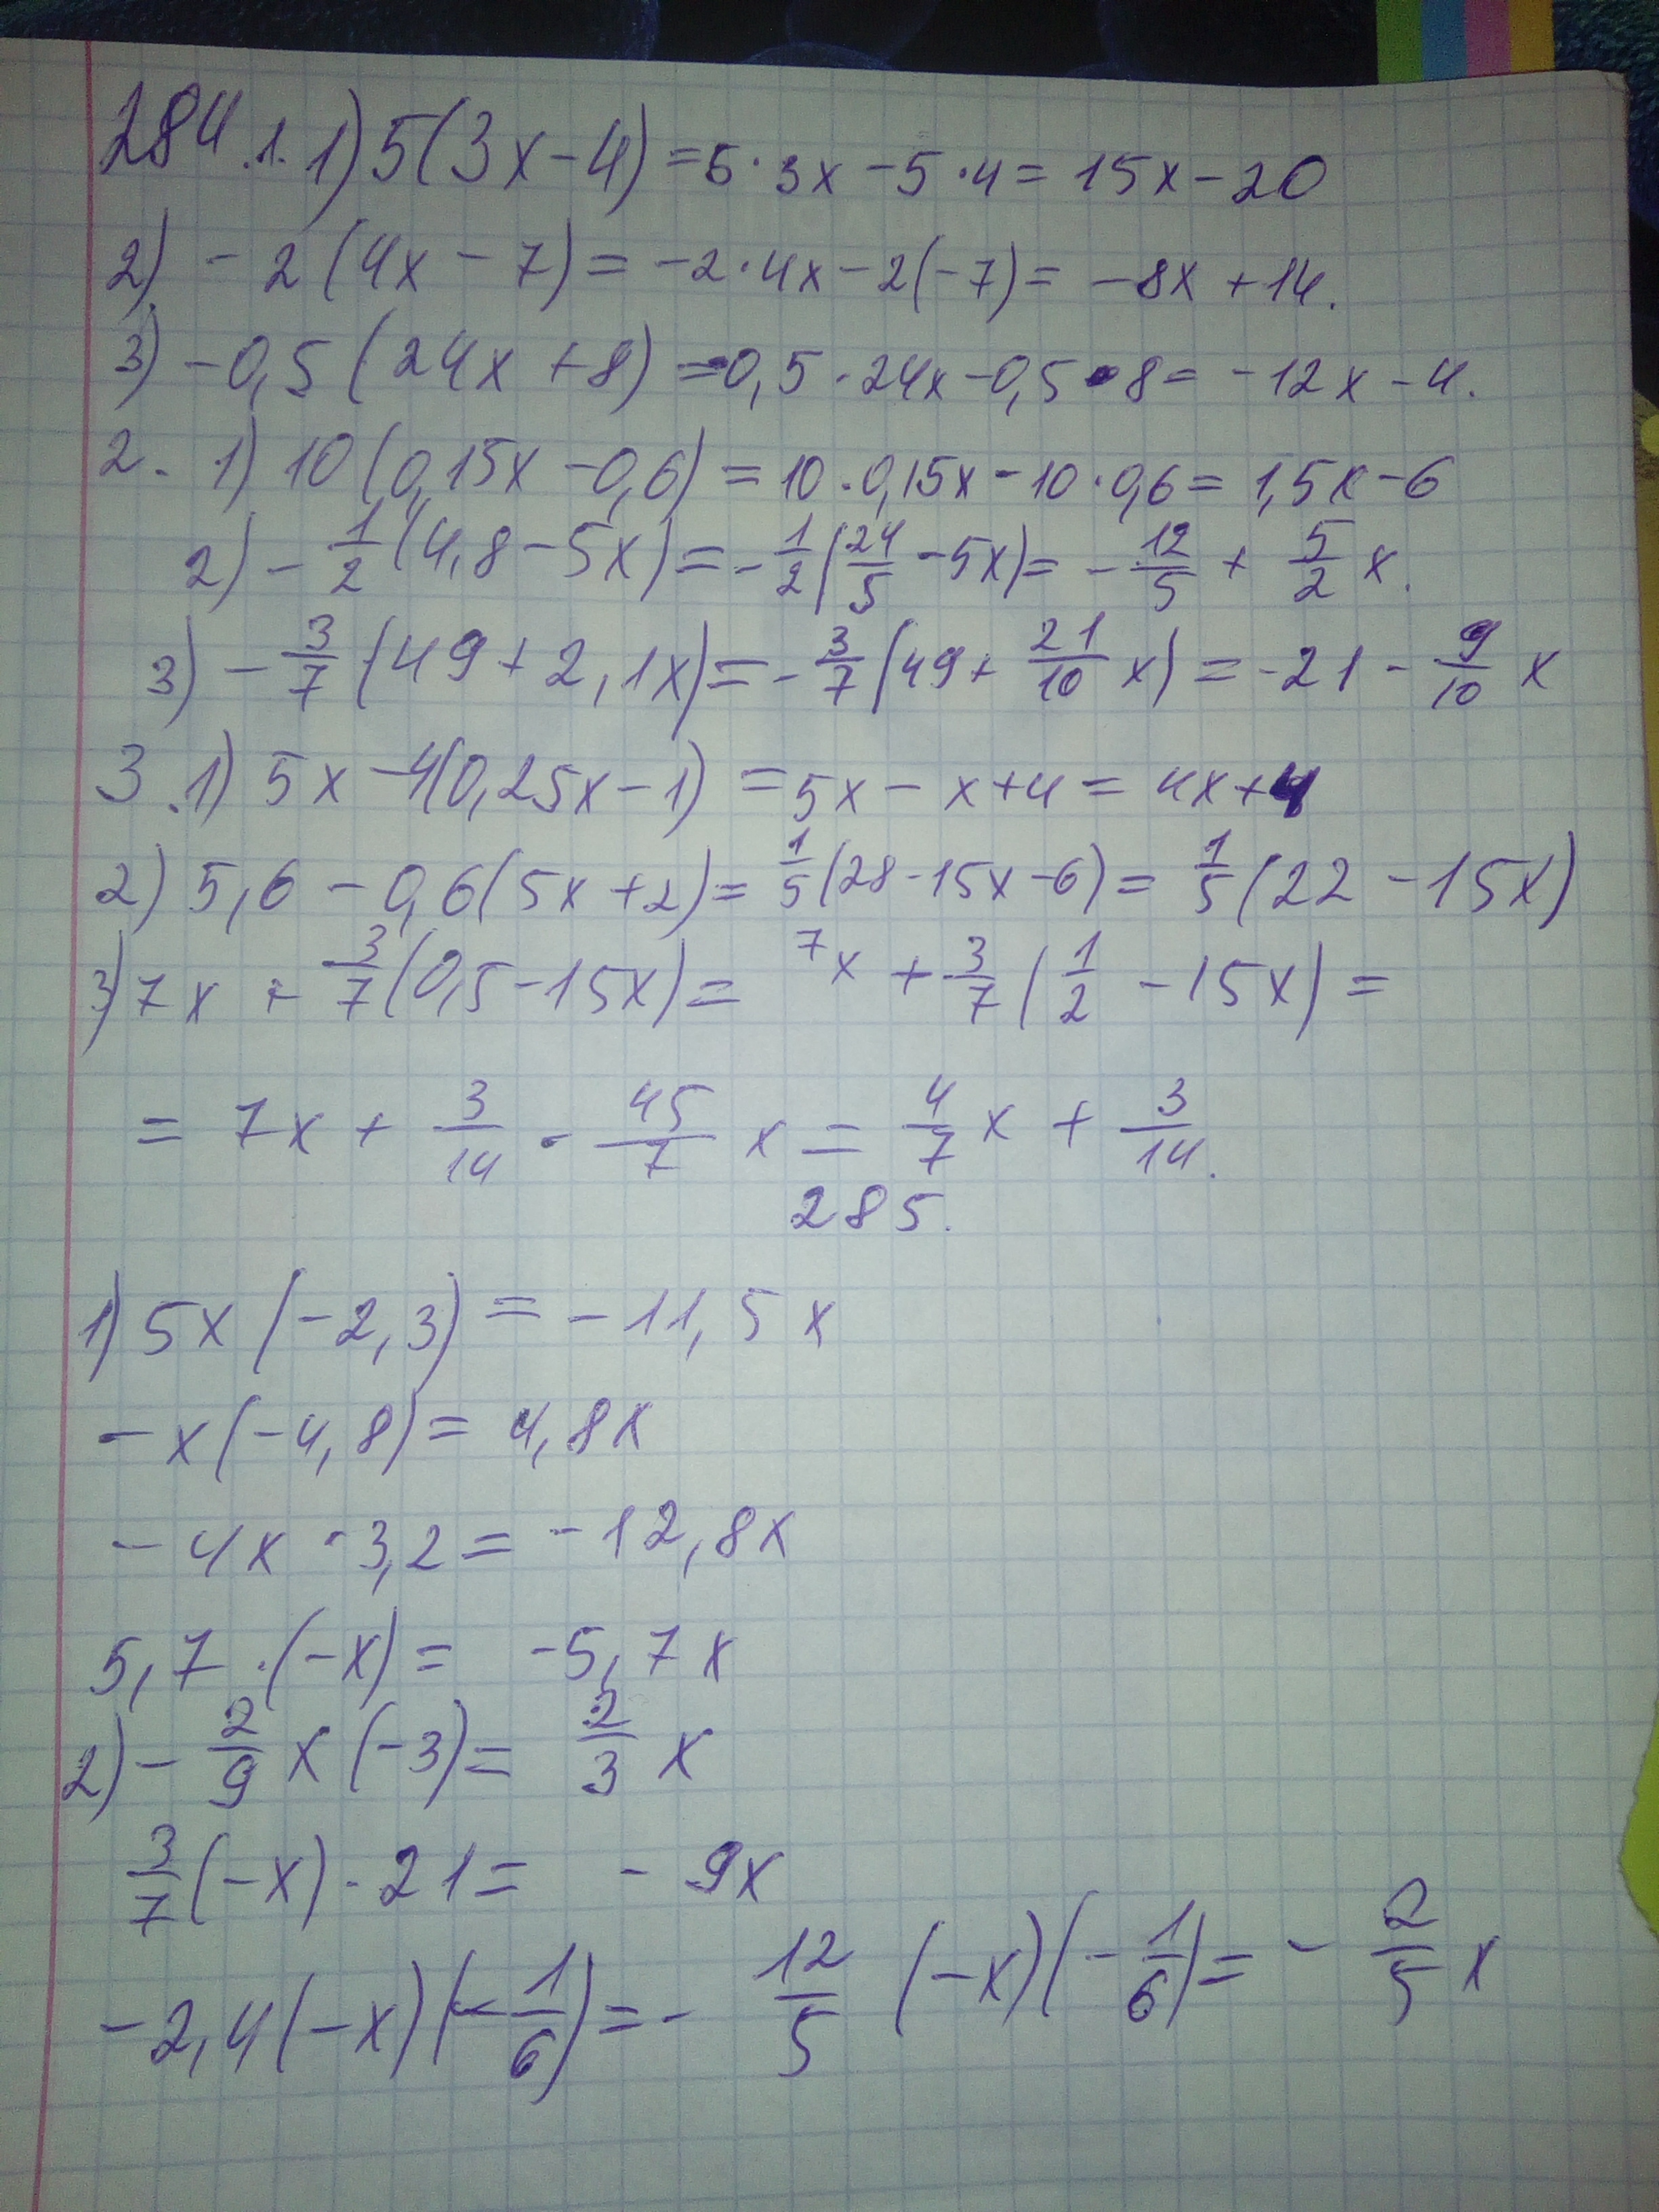 284.1. 1) 5(3x-4)=5·3x-5·4=15x-20
2) -2(4x-7)=-2·4x-2(-7)=-8x+14.
3) -0,5(24x+8)=-0,5·24x-0,5·8=-12x-4.
2. 1) 10(0,15x-0,6)=10·0,15x-10·0,6=1,5x-6
2) -1/2(4,8-5x)=-1/2(24/5-5x)=-12/5+5/2x.
3) -3/7(49+2,1x)=-3/7(49+21/10x)=-21-9/10x
3.1) 5x-4(0,25x-1)=5x-x+4=4x+4
2) 5,6-0,6(5x+2)=1/5(28-15x-6)=1/5(22-15x)
3) 7x+3/7(0,5-15x)=7x+3/7(1/2-15x)=
=7x+3/14-45/7x=4/7x+3/14.
285.
1) 5x(-2,3)=-11,5x
-x(-4,8)=4,8x
-4x·3,2=-12,8x
5,7·(-x)=-5,7x
2) -2/9x(-3)=2/3x
3/7(-x)·21=-9x
-2,4(-x)(-1/6)=-12/5(-x)(-1/6)=-2/5x